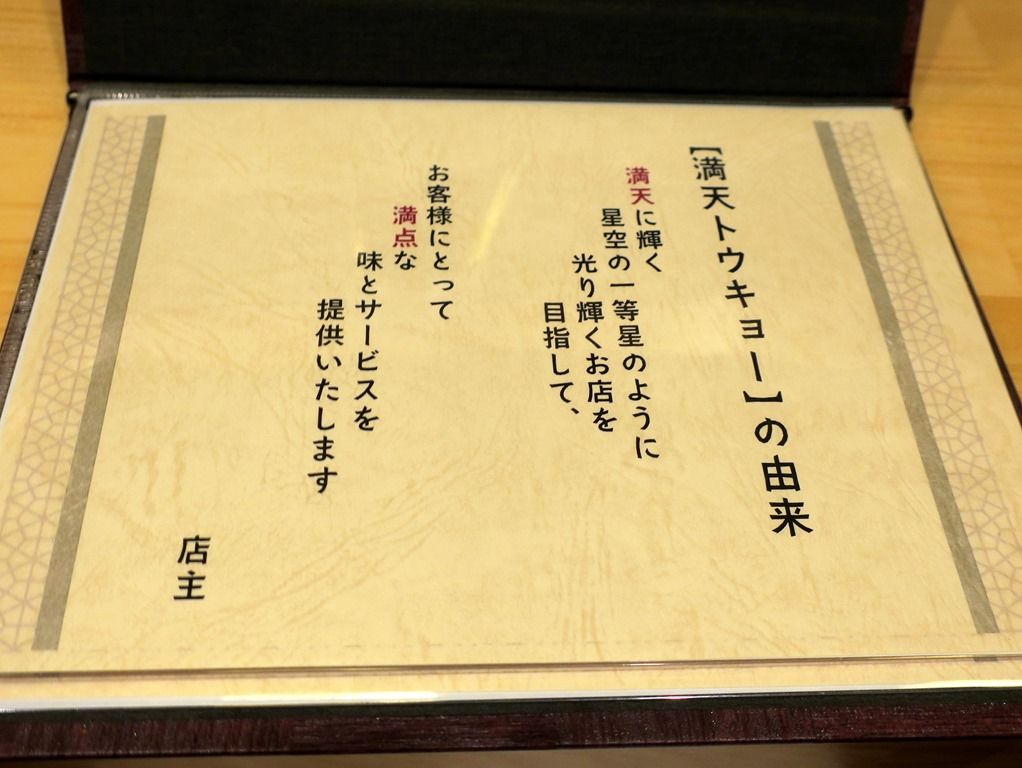 【満天トウキョー】の由来
満天に輝く
星空の一等星のように
光り輝くお店を
目指して、
お客様にとって
満点な
味とサービスを
提供いたします
店主